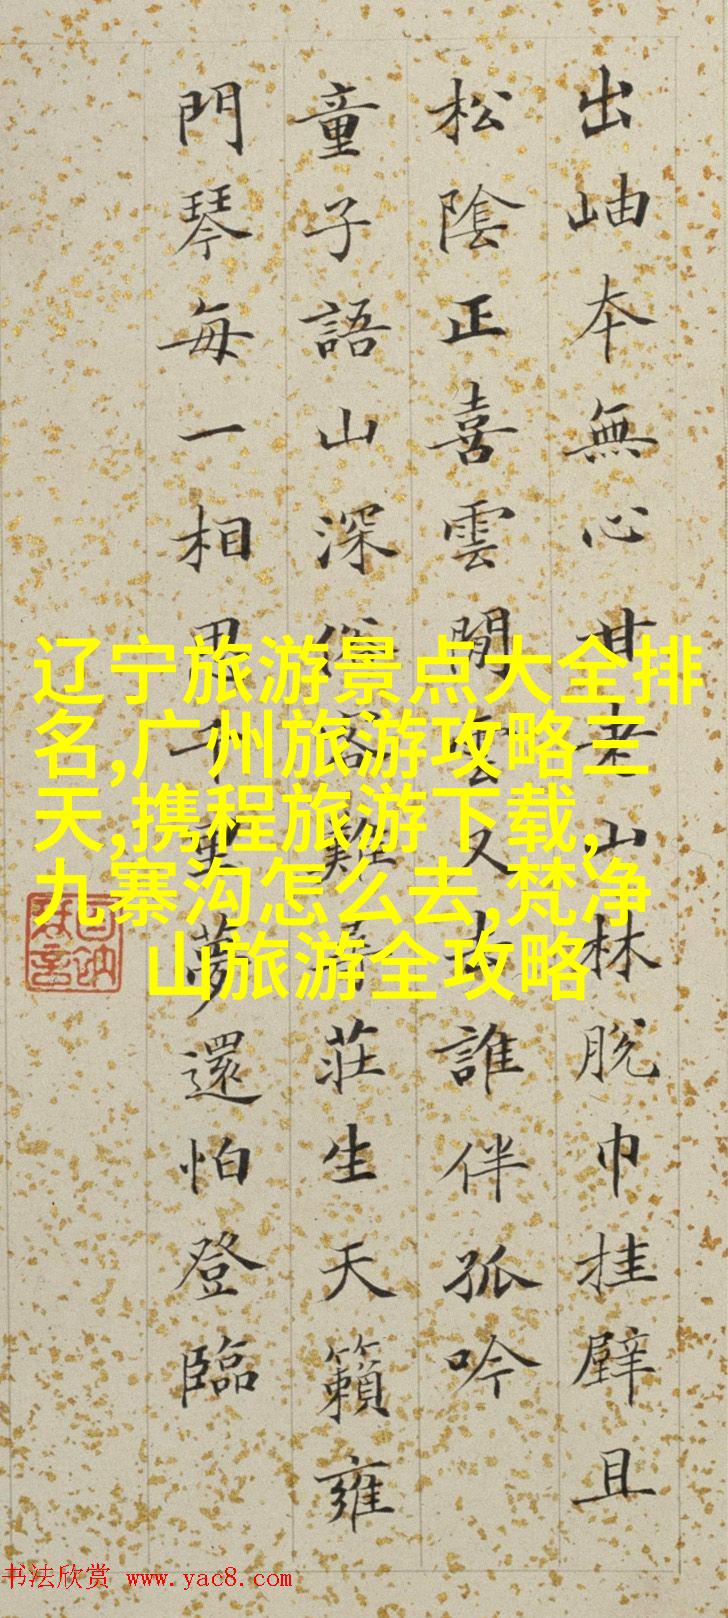 出岫本無心甘老山林脫巾挂壁且
松陰正喜雲閒雲又去誰伴孤吟
童子語山深俗客難尋莊生天籟雍
門琴每一相思千里夢還怕登臨
辽宁旅游景点大全排
名,广州旅游攻略三
天,携程旅游下载,
九寨沟怎么去,梵净
山旅游全攻略
书法欣赏 www.yac8.com